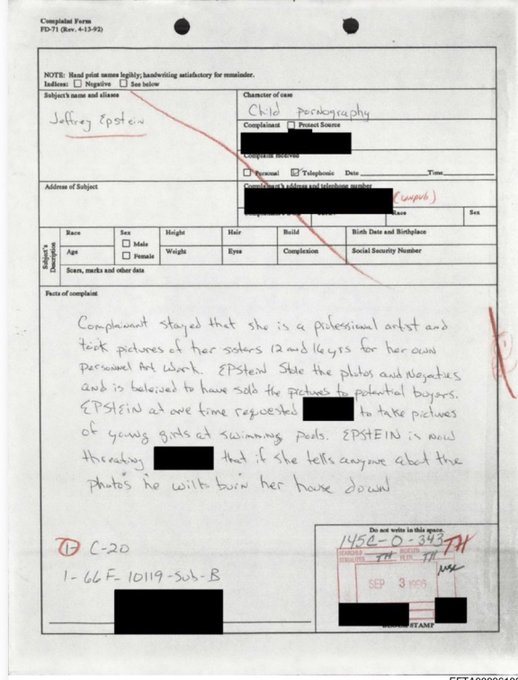 Complaint Form
FD-71 (Rev. 4-13-92)
NOTE: Hand print names legibly; handwriting satisfactory for remainder.
Indices: Negative See below
Subject's name and aliases
Jeffrey Epstein
Character of case
Child pornography
Complainant Protect Source
Complaint received
Personal Telephonic Date Time
Address of Subject
Complainant's address and telephone number
(unpub)
Race Sex
Subject's Description
Race Sex Height Hair Build Birth Date and Birthplace
Male
Age Female Weight Eyes Complexion Social Security Number
Scars, marks and other data
Facts of complaint
Complainant stayed that she is a professional artist and
took pictures of her sisters 12 and 16 yrs for her own
personnel Art Work. EPstein Stole the photos and Negatives
and is beleived to have sold the pictures to potential buyers.
EPSTEIN at one time requested to take pictures
of young girls at swimming pools. EPSTEIN is now
threating that if she tells anyone about the
photos he will burn her house down
1- C-20
1-66F-10119-Sub-B
Do not write in this space.
145C-0-343
TH
SEARCHED INDEXED
SERIALIZED TH FILED TH
SEP 3 1996
STAMP